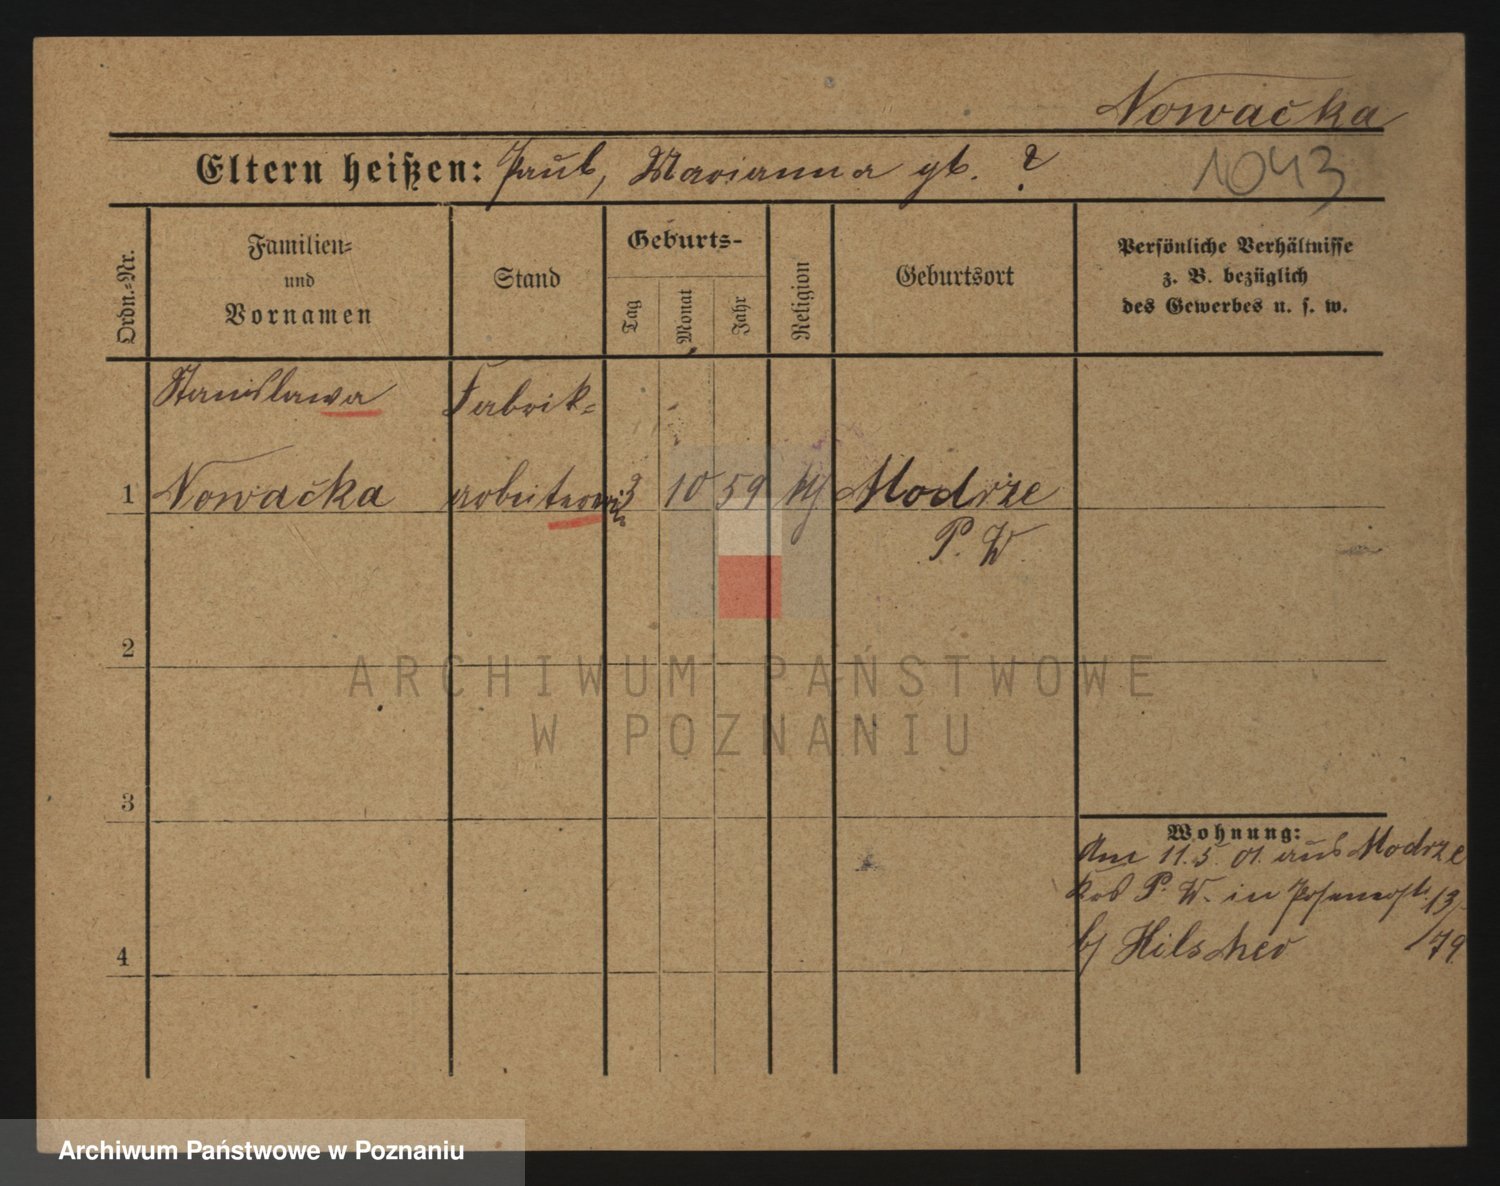 Nowačka
Eltern heißen: Paul, Marianna gb. ?
1043
Ordn.-Nr.
Familien-
und
Vornamen
Stand
Geburts-
Tag
Monat
Jahr
Religion
Geburtsort
Persönliche Verhältnisse
z. B. bezüglich
des Gewerbes u. s. w.
Stanislawa Fabrik-
1 Nowačka arbeiterin 3 10 59 Modrze
P. W.
2
3
4
Wohnung:
Am 11.5. 01. aus Modrze
Krs P. W. in Posenerstr. 13/
b/ Hilscher /79
ARCHIWUM PAŃSTWOWE
W POZNANIU
Archiwum Państwowe w Poznaniu